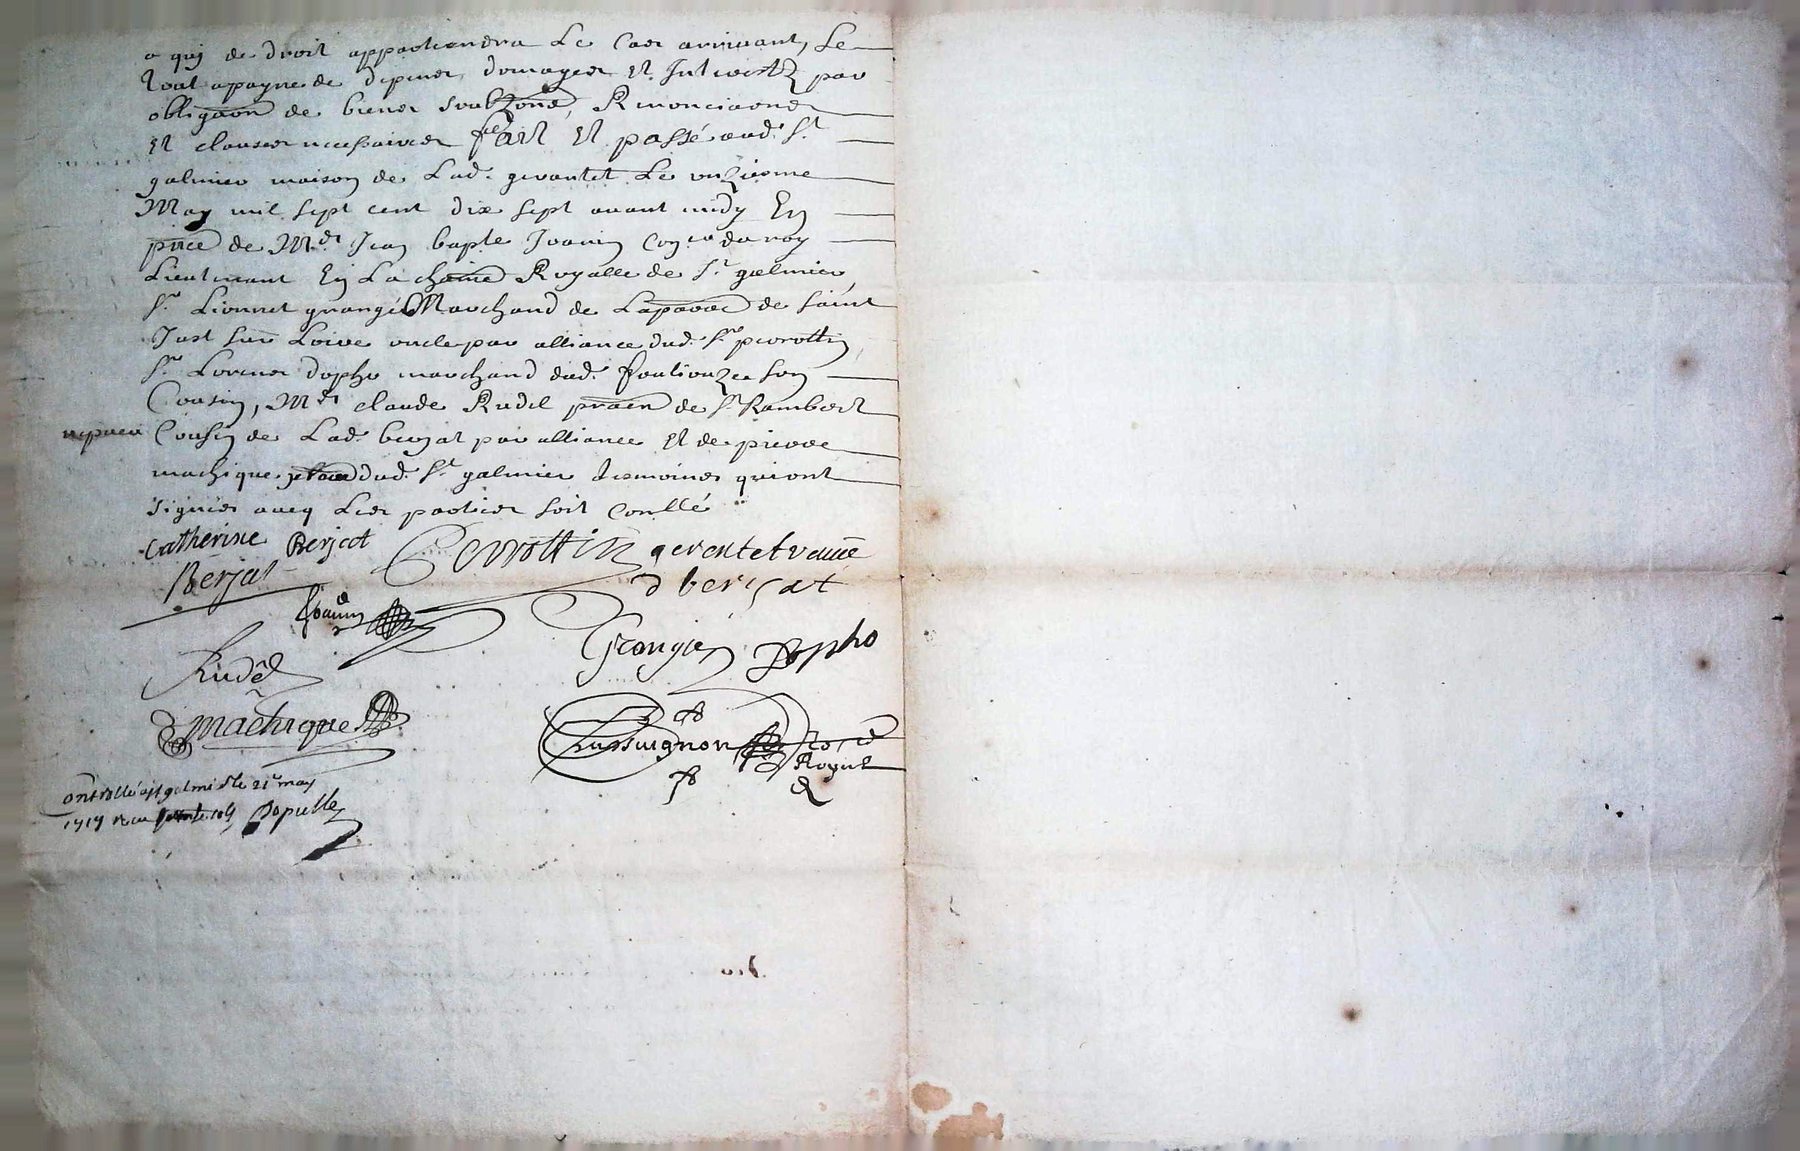 a quj de droit appartiendra Le Cas arrivant, Le
tout apayne de depens, domages Et Interestz par
obliga͠on de biens soub͠zone, Renonciaons
Et clauses necessaires fait Et passé aud. St
galmier maison de Lad. gerantet Le unzieme
May mil sept cent dix sept avant midy En
p͠nce de Me Jean bapte Joanin Con.er du roy
Lieutenant En La cha͠nie Royalle de St galmier,
Sr Lionnet grangié Marchand de Lapa͠roe de saint
Just sur Loire oncle par alliance dud. Sr perrottin,
Sr Lorens dopho marchand dud. son
Cousin, Me claude Rudel de St Rambert
Cousin de Lad. berjat par alliance Et de pierre
machique dud. St galmier tesmoins qui ont
signés avecq Les parties soit Conllé
Catherine Berjat Perrottin gerentet veuue
Berjat d berjat
Joanin
Grangié Dopho
Rudel
Machique
Cussuignon no.re
Royal
Controllé a st galmi le 21e may
1717 Dopulle